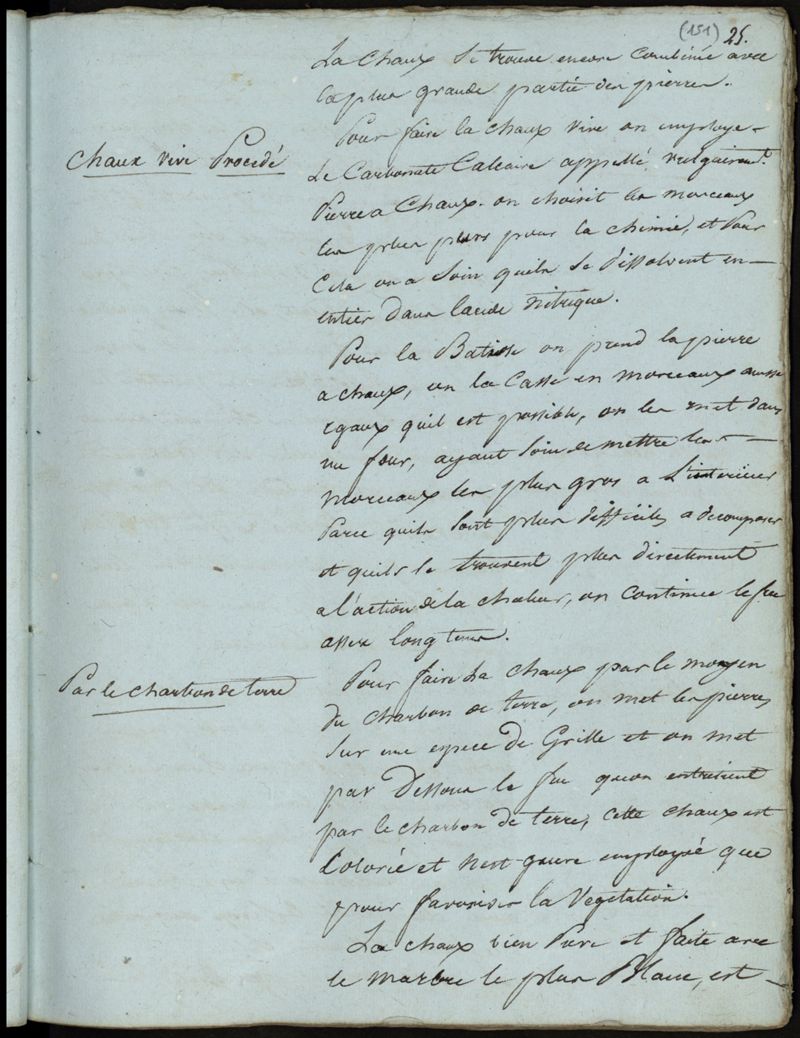 (151) 25.
La Chaux se trouve encore combinée avec
la plus grande partie des pierres.
Chaux vive Procedé
Pour faire la chaux vive on employe
Le Carbonate Calcaire appellé vulgairemt.
Pierre a Chaux. on choisit les morceaux
les plus purs pour la chimie, et Pour
Cela on a soin quils se dissolvent en—
entier dans lacide nitrique.
Pour la Batisse on prend la pierre
a chaux, on la Casse en morceaux aussi
egaux quil est possible, on les met dans
un four, ayant soin de mettre les —
morceaux les plus gros a L'interieur
Parce quils sont plus difficiles a decomposer
et quils se trouvent plus directement
a l'action de la chaleur, on continue le feu
assez long tems.
Par le charbon de terre
Pour faire La chaux par le moyen
du charbon de terre, on met les pierres
sur une espece de Grille et on met
par Dessous le feu quon entretient
par le charbon de terre, cette chaux est
Colorié et n'est guere employée que
pour favoriser la Vegetation.
La chaux bien Pure et faite avec
le marbre le plus Blanc, est —